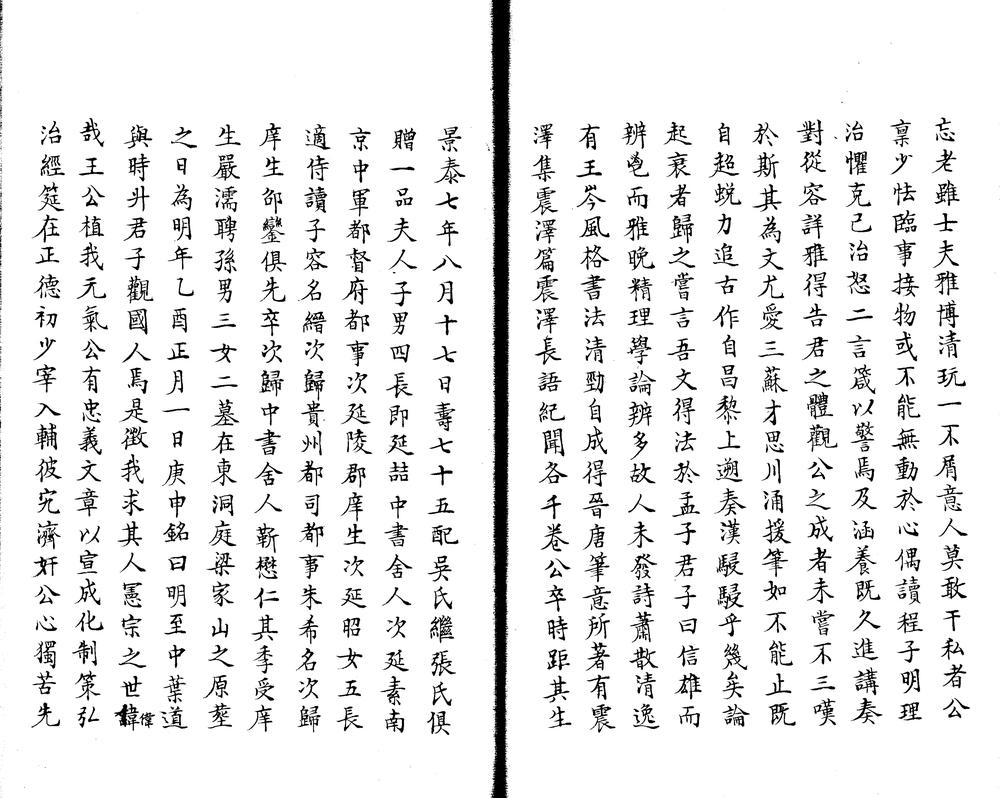 忘老雖士夫雅博清玩一不屑意人莫敢干私者公
稟少怯臨事接物或不能無動於心偶讀程子明理
治懼克己治怒二言箴以警焉及涵養既久進講奏
對從容詳雅得告君之體觀公之成者未嘗不三嘆
於斯其為文尤愛三蘇才思川涌援筆如不能止既
自超蛻力追古作自昌黎上遡奏漢駸駸乎幾矣論
起衰者歸之嘗言吾文得法於孟子君子曰信雄而
辨邕而雅晚精理學論辨多故人未發詩蕭散清逸
有王岑風格書法清勁自成得晉唐筆意所著有震
澤集震澤篇震澤長語紀聞各千卷公卒時距其生
景泰七年八月十七日壽七十五配吳氏繼張氏俱
贈一品夫人子男四長即延喆中書舍人次延素南
京中軍都督府都事次延陵郡庠生次延昭女五長
適侍讀子容名縉次歸貴州都司都事朱希名次歸
庠生邵鑾俱先卒次歸中書舍人靳懋仁其季受庠
生嚴濡聘孫男三女二墓在東洞庭梁家山之原塟
之日為明年乙酉正月一日庚申銘曰明至中葉道
與時升君子觀國人焉是徵我求其人憲宗之世韡偉
哉王公植我元氣公有忠義文章以宣成化制策弘
治經筵在正德初少宰入輔彼宄濟奸公心獨苦先